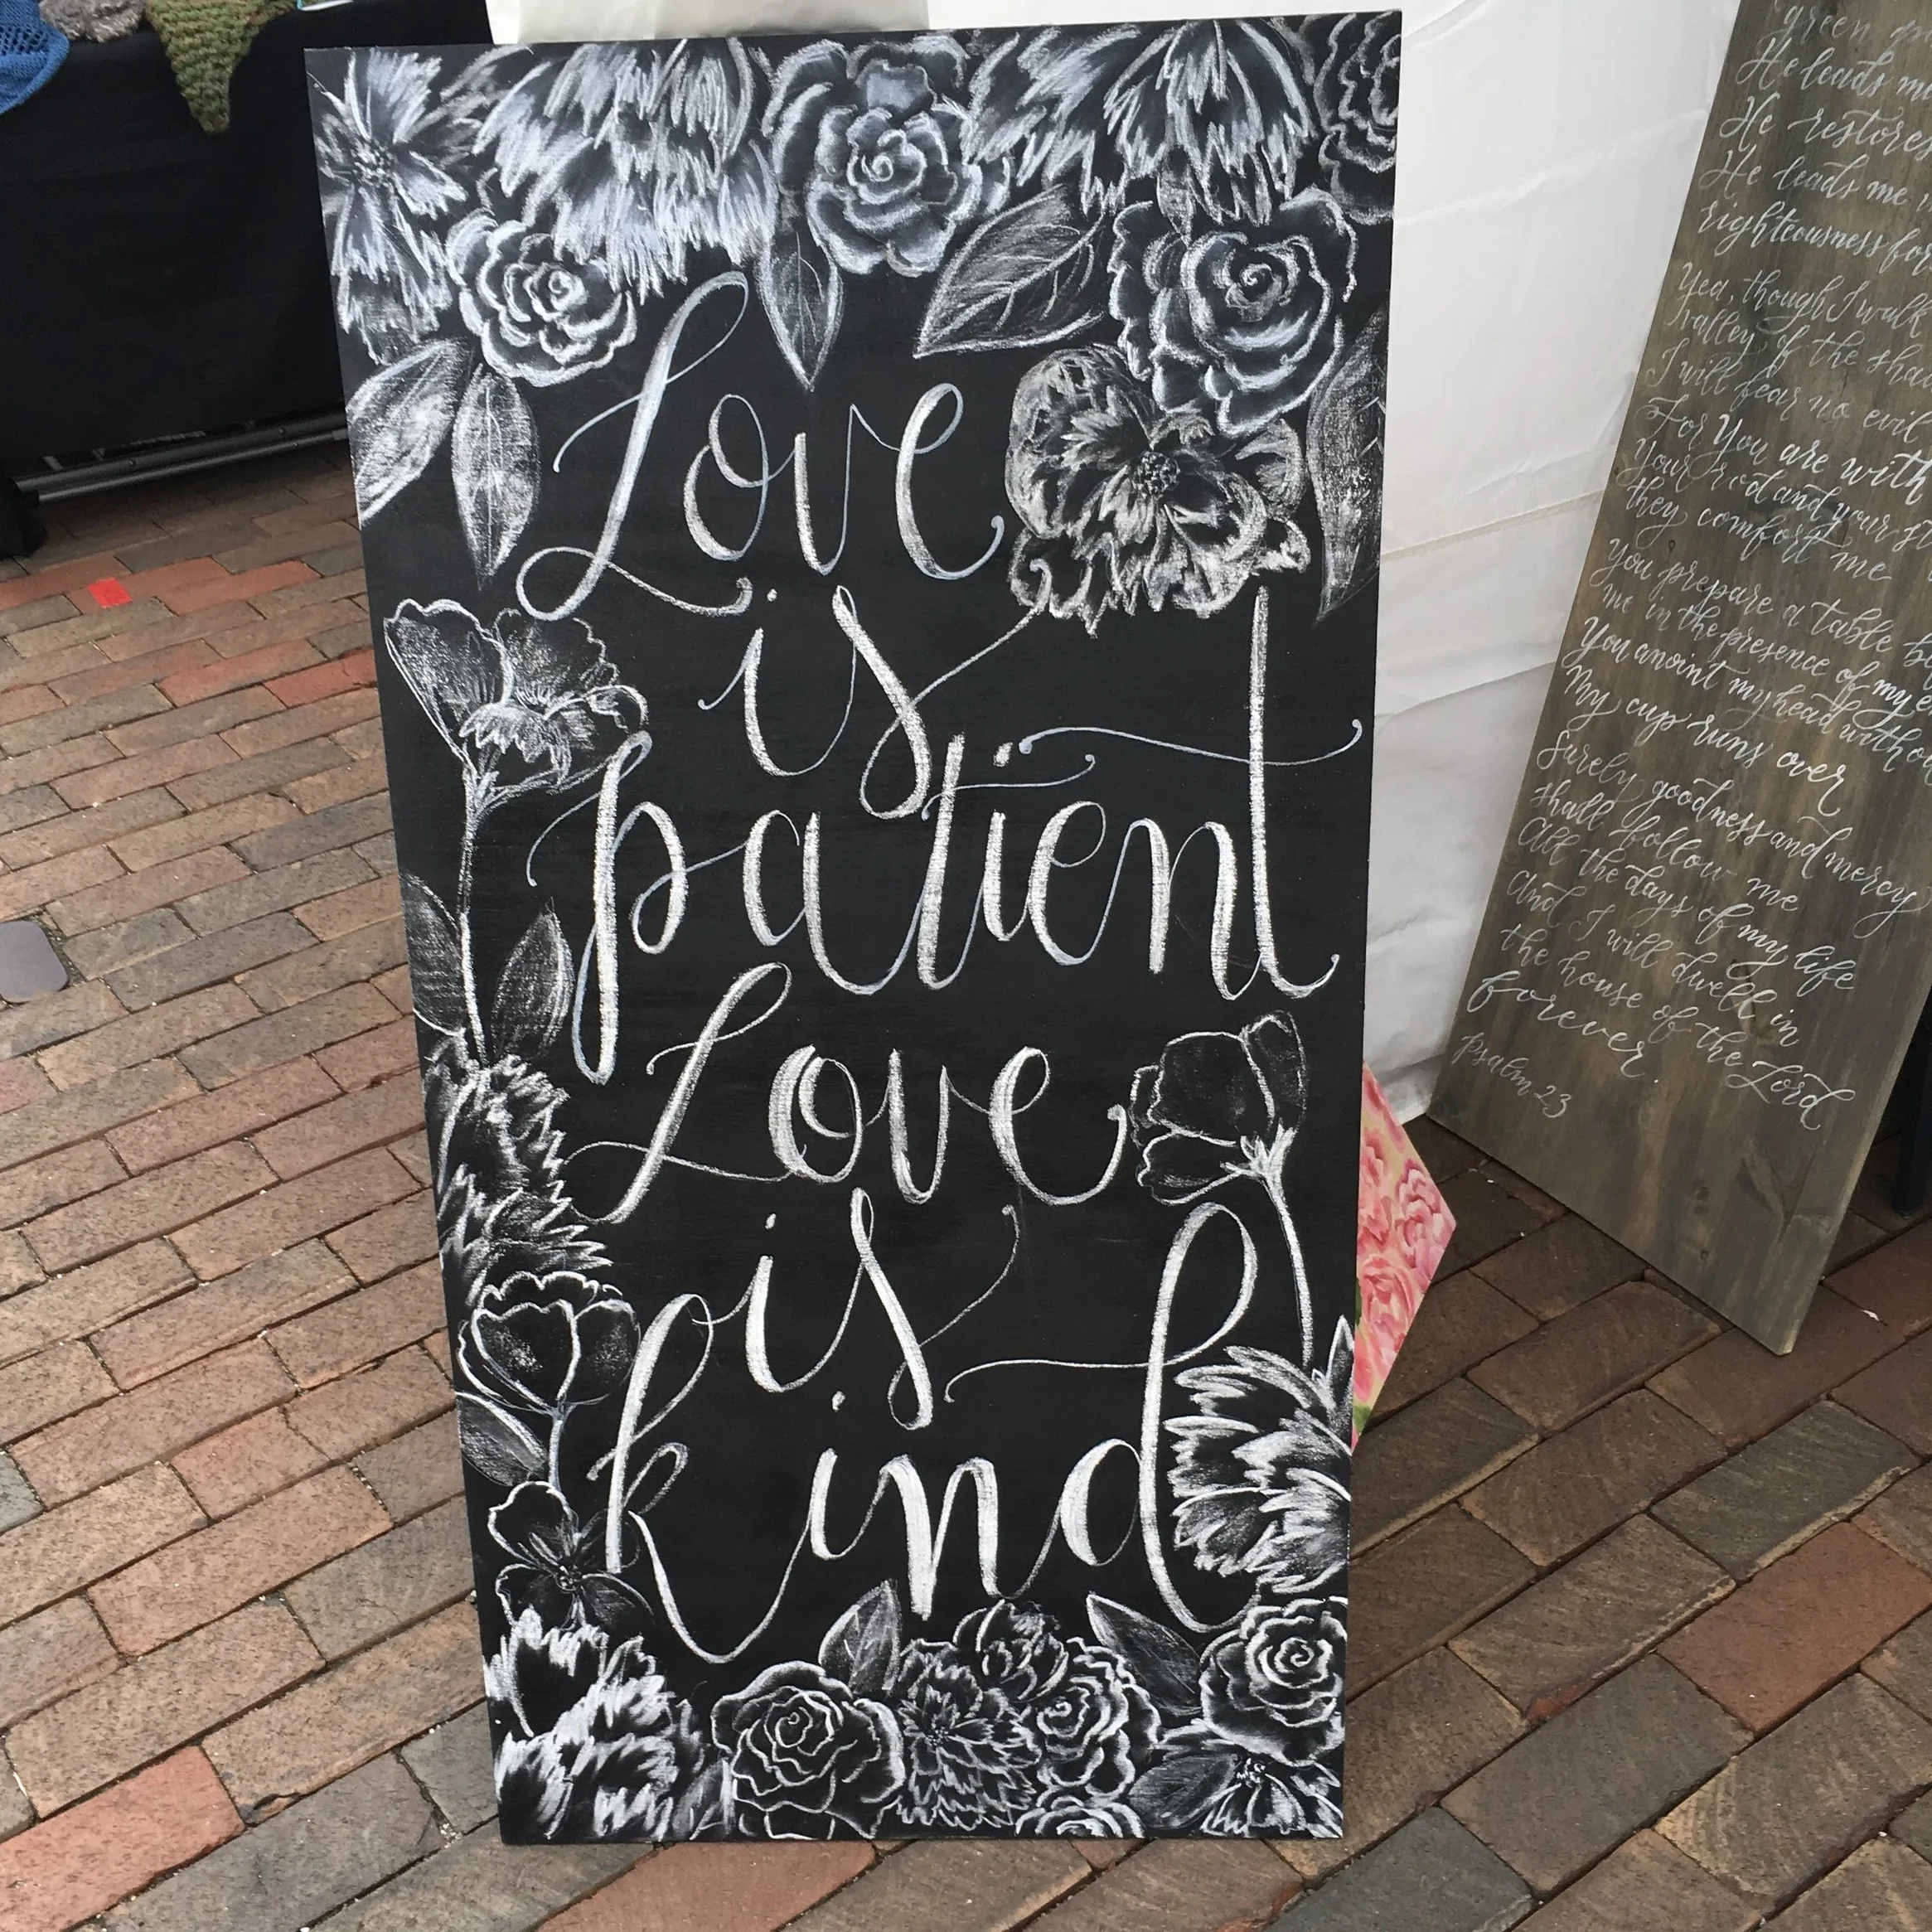 Love
is
patient
Love
is
kind
green
He leads me
He restores
He leads me
righteousness for
Yea, though I walk
valley of the
I will fear no evil
For You are with
Your rod and your
they comfort me
You prepare a table
me in the presence of my
You anoint my head with
My cup runs over
Surely goodness and mercy
shall follow me
All the days of my life
And I will dwell in
the house of the Lord
forever.
psalm 23